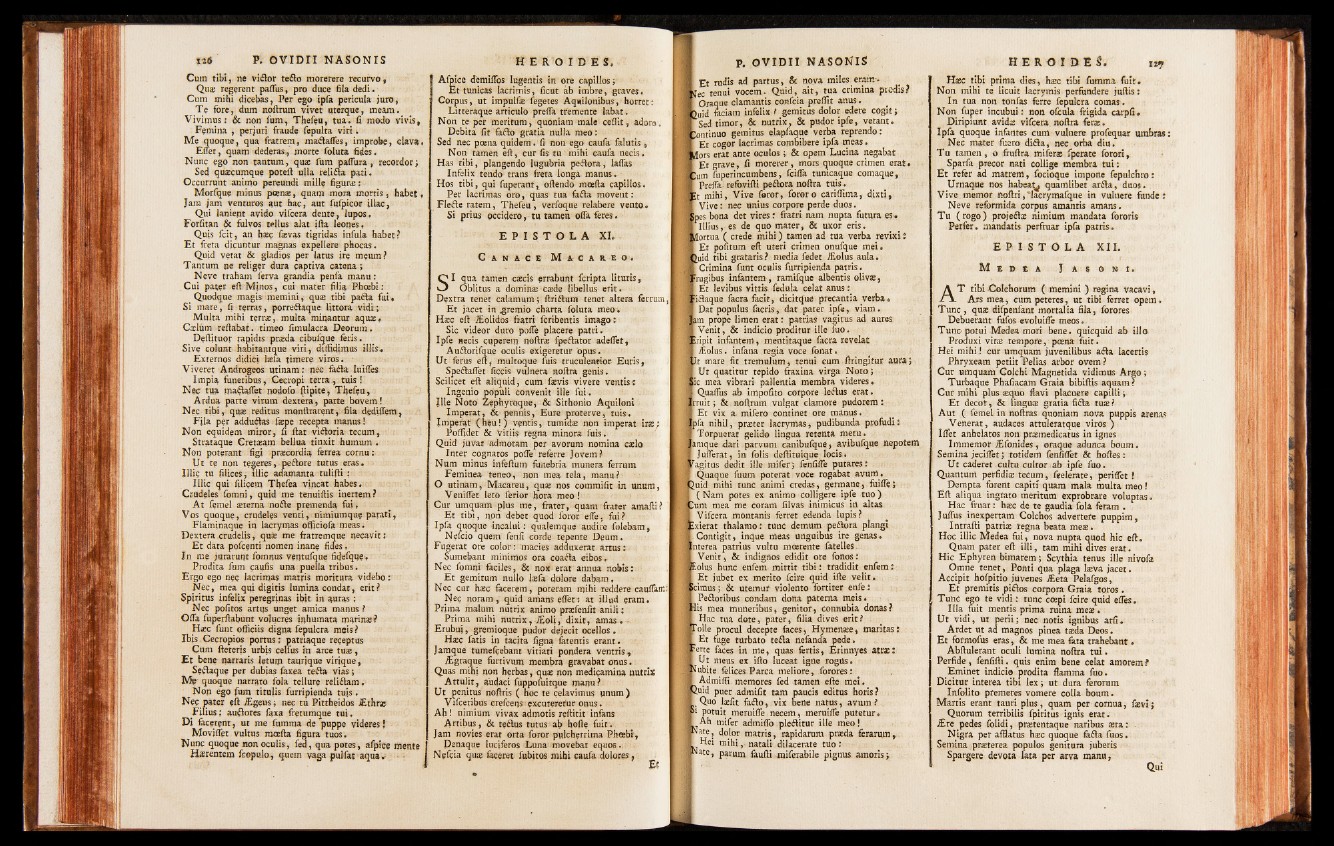 126 P. OVIDII NASONIS
Cum tibi, ne victor tecto morerere recurvo,
Quæ regerent passus, pro duce fila dedi.
Cum mihi dicebas, Per ego ipsa pericula juro,
Te fore, dum nostrum vivet uterque, meam.
Vivimus: & non sum, Theseu, tua. si modo vivis,
Femina, perjuri fraude sepulta viri.
Me quoque, qua fratrem, mactasses, improbe, clava,
Esset, quam dederas, morte soluta fides.
Nunc ego non tantum, quæ sum passura, recordor;
Sed quæcumque potest ulla relicta pati.
Occurrunt animo pereundi mille figuræ:
Morsque minus pœnæ, quam mora mortis, habet,
Jam jam venturos aut hac, aut suspicor illac,
Qui lanient avido viscera dente, lupos.
Forsitan & fulvos tellus alat ista leones.
Quis scit, an hæc sævas tigridas insula habet?
Et freta dicuntur magnas expellere phocas.
Quid vetat & gladios per latus ire meum?
Tantum ne religer dura captiva catena;
Neve traham serva grandia pensa manu:
Cui pater est Minos, cui mater filia Phœbi:
Quodque magis memini, quæ tibi pacta fui.
Si mare, si terras, porrectaque littora vidi;
Multa mihi terræ, multa minantur aquæ.
Cælum restabat. timeo simulacra Deorum.
Destituor rapidis præda cibusque feris.
Sive colunt habitantque viri, diffidimus illis.
Externos didici læsa timere viros.
Viveret Androgeos utinam: nec facta luisses
Impia funeribus, Cecropi terra, tuis!
Nec tua mactasset nodoso stipite, Theseu,
Ardua parte virum dextera, parte bovem!
Nec tibi, quæ reditus monstrarent, fila dedissem,
Fila per adductas sæpe recepta manus!
Non equidem miror, si stat victoria tecum,
Strataque Cretæam bellua tinxit humum.
Non poterant figi præcordia ferrea cornu:
Ut te non tegeres, pectore tutus eras.
Illic tu silices, illic adamanta tulisti:
Illic qui silicem Thesea vincat habes.
Crudeles somni, quid me tenuistis inertem?
At semel æterna nocte premenda fui.
Vos quoque, crudeles venti, nimiumque parati,
Flaminaque in lacrymas officiosa meas.
Dextera crudelis, quæ me fratremque necavit:
Et data poscenti nomen inane fides.
In me jurarunt somnus ventusque fidesque.
Prodita sum causis una puella tribus.
Ergo ego nec lacrimas matris moritura videbo:
Nec, mea qui digitis lumina condat, erit?
Spiritus infelix peregrinas ibit in auras:
Nec positos artus unget amica manus?
Ossa superstabunt volucres inhumata marinæ?
Hæc sunt officiis digna sepulcra meis?
Ibis Cecropios portus: patriaque receptus
Cum steteris urbis celsus in arce tuæ,
Et bene narraris letum taurique virique,
Sectaque per dubias saxea tecta vias;
Me quoque narrato sola tellure relictam.
Non ego sum titulis surripienda tuis.
Nec pater est Ægeus; nec tu Pittheidos Æthræ
Filius: auctores saxa fretumque tui.
Di facerent, ut me summa de puppe videres!
Movisset vultus mœsta figura tuos.
Nunc quoque non oculis, sed, qua potes, aspice mente
Hærentem scopulo, quem vaga pulsat aqua.
HEROIDES.
Aspice demissos lugentis in ore capillos;
Et tunicas lacrimis, sicut ab imbre, graves.
Corpus, ut impulsæ segetes Aquilonibus, horret:
Litteraque articulo pressa tremente labat.
Non te per meritum, quoniam male cessit, adoro.
Debita sit facto gratia nulla meo:
Sed nec pœna quidem. si non ego causa salutis,
Non tamen est, cur sis tu mihi causa necis.
Has tibi, plangendo lugubria pectora, lassas
Infelix tendo trans freta longa manus.
Hos tibi, qui superant, ostendo mœsta capillos.
Per lacrimas oro, quas tua facta movent:
Flecte ratem, Theseu, versoque relabere vento.
Si prius occidero, tu tamen ossa feres.
EPISTOLA XI.
CANACE MACAREO.
SI qua tamen cæcis errabunt scripta lituris,
Oblitus a dominæ cæde libellus erit.
Dextra tenet calamum; strictum tenet altera ferrum,
Et jacet in gremio charta soluta meo.
Hæc est Æolidos fratri scribentis imago:
Sic videor duro posse placere patri.
Ipse necis cuperem nostræ spectator adesset,
Auctorisque oculis exigeretur opus.
Ut ferus est, multoque suis truculentior Euris,
Spectasset siccis vulnera nostra genis.
Scilicet est aliquid, cum sævis vivere ventis:
Ingenio populi convenit ille sui.
Ille Noto Zephyroque, & Sithonio Aquiloni
Imperat, & pennis, Eure proterve, tuis.
Imperat (heu!) ventis, tumidæ non imperat iræ;
Possidet & vitiis regna minora suis.
Quid juvat admotam per avorum nomina cælo
Inter cognatos posse referre Jovem?
Num minus infestum funebria munera ferrum
Feminea teneo, non mea tela, manu?
O utinam, Macareu, quæ nos commisit in unum,
Venisset leto serior hora meo!
Cur umquam plus me, frater, quam frater amasti?
Et tibi, non debet quod soror esse, fui?
Ipsa quoque incalui: qualemque audire solebam,
Nescio quem sensi corde tepente Deum.
Fugerat ore color: macies adduxerat artus:
Sumebant minimos ora coacta cibos.
Nec somni faciles, & nox erat annua nobis:
Et gemitum nullo læsa dolore dabam.
Nec cur hæc facerem, poteram mihi reddere caussam:
Nec noram, quid amans esset: at illud eram.
Prima malum nutrix animo præsensit anili:
Prima mihi nutrix, Æoli, dixit, amas.
Erubui, gremioque pudor dejecit ocellos.
Hæc satis in tacita signa fatentis erant.
Jamque tumescebant vitiari pondera ventris,
Ægraque furtivum membra gravabat onus.
Quas mihi non herbas, quæ non medicamina nutrix
Attulit, audaci supposuitque manu?
Ut penitus nostris (hoc te celavimus unum)
Visceribus crescens excuteretur onus.
Ah! nimium vivax admotis restitit infans
Artibus, & tectus tutus ab hoste fuit.
Jam novies erat orta soror pulcherrima Phœbi,
Denaque luciferos Luna movebat equos.
Nescia quæ faceret subitos mihi causa dolores,
Et
P. OVIDII NASONIS
Et rudis ad partus, & nova miles eram.
Nec tenui vocem. Quid, ait, tua crimina prodis?
Oraque clamantis conscia pressit anus.
Quid faciam infelix? gemitus dolor edere cogit;
Sed timor, & nutrix, & pudor ipse, vetant.
Continuo gemitus elapsaque verba reprendo:
Et cogor lacrimas combibere ipsa meas.
Mors erat ante oculos; & opem Lucina negabat
Et grave, si morerer, mors quoque crimen erat.
Cum superincumbens, scissa tunicaque comaque,
Pressa refovisti pectora nostra tuis.
Et mihi, Vive soror, soror o carissima, dixti,
Vive: nec unius corpore perde duos.
Spes bona det vires: fratri nam nupta futura es.
Illius, es de quo mater, & uxor eris.
Mortua (crede mihi) tamen ad tua verba revixi:
Et positum est uteri crimen onusque mei.
Quid tibi grataris? media sedet Æolus aula.
Crimina sunt oculis surripienda patris.
Frugibus infantem, ramisque albentis olivæ,
Et levibus vittis sedula celat anus:
Fictaque sacra facit, dicitque precantia verba.
Dat populus sacris, dat pater ipse, viam.
Jam prope limen erat: patrias vagitus ad aures
Venit, & indicio proditur ille suo.
Eripit infantem, mentitaque sacra revelat
Æolus. insana regia voce sonat.
Ut mare fit tremulum, tenui cum stringitur aura;
Ut quatitur tepido fraxina virga Noto;
Sic mea vibrari pallentia membra videres.
Quassus ab imposito corpore lectus erat.
Irruit; & nostrum vulgat clamore pudorem:
Et vix a misero continet ore manus.
Ipsa nihil, præter lacrymas, pudibunda profudi:
Torpuerat gelido lingua retenta metu.
Jamque dari parvum canibusque, avibusque nepotem
Jusserat, in solis destituique locis.
Vagitus dedit ille miser; sensisse putares:
Quaque suum poterat voce rogabat avum.
Quid mihi tunc animi credas, germane, fuisse;
(Nam potes ex animo colligere ipse tuo)
Cum mea me coram silvas inimicus in altas
Viscera montanis ferret edenda lupis?
Exierat thalamo: tunc demum pectora plangi
Contigit, inque meas unguibus ire genas.
Interea patrius vultu mœrente satelles
Venit, & indignos edidit ore sonos:
Æolus hunc ensem mittit tibi: tradidit ensem:
Et jubet ex merito scire quid iste velit.
Scimus; & utemur violento fortiter ense:
Pectoribus condam dona paterna meis.
His mea muneribus, genitor, connubia donas?
Hac tua dote, pater, filia dives erit?
Tolle procul decepte faces, Hymenæe, maritas:
Et fuge turbato tecta nefanda pede.
Ferte faces in me, quas fertis, Erinnyes atræ:
Ut meus ex isto luceat igne rogus.
Nubite felices Parca meliore, sorores:
Admissi memores sed tamen este mei.
Quid puer admisit tam paucis editus horis?
Quo læsit facto, vix bene natus, avum?
Si potuit meruisse necem, meruisse putetur.
Ah miser admisso plectitur ille meo!
Nate, dolor matris, rapidarum præda ferarum,
Hei mihi, natali dilacerate tuo:
Nate, parum fausti miserabile pignus amoris;
HEROIDES. 127
Hæc tibi prima dies, hæc tibi summa fuit.
Non mihi te licuit lacrymis perfundere justis:
In tua non tonsas ferre sepulcra comas.
Non super incubui: non oscula frigida carpsi.
Diripiunt avidæ viscera nostra feræ.
Ipsa quoque infantes cum vulnere prosequar umbras:
Nec mater fuero dicta, nec orba diu.
Tu tamen, o frustra miseræ sperate sorori,
Sparsa precor nati collige membra tui:
Et refer ad matrem, socioque impone sepulchro:
Urnaque nos habeat, quamlibet arcta, duos.
Vive memor nostri, lacrymasque in vulnere funde:
Neve reformida corpus amantis amans.
Tu (rogo) projectæ nimium mandata sororis
Perfer. mandatis perfruar ipsa patris.
EPISTOLA XII.
MEDEA JASONI.
AT tibi Colchorum (memini) regina vacavi,
Ars mea, cum peteres, ut tibi ferret opem.
Tunc, quæ dispensant mortalia fila, sorores
Debuerant fusos evoluisse meos.
Tunc potui Medea mori bene. quicquid ab illo
Produxi vitæ tempore, pœna fuit.
Hei mihi! cur umquam juvenilibus acta lacertis
Phryxeam petiit Pelias arbor ovem?
Cur umquam Colchi Magnetida vidimus Argo;
Turbaque Phasiacam Graia bibistis aquam?
Cur mihi plus æquo flavi placuere capilli;
Et decor, & linguæ gratia ficta tuæ?
Aut (semel in nostras quoniam nova puppis arenas
Venerat, audaces attuleratque viros)
Isset anhelatos non præmedicatus in ignes
Immemor Æsonides, oraque adunca boum.
Semina jecisset; totidem sensisset & hostes:
Ut caderet cultu cultor ab ipse suo.
Quantum perfidiæ tecum, scelerate, perisset!
Dempta forent capiti quam mala multa meo!
Est aliqua ingrato meritum exprobrare voluptas.
Hac fruar: hæc de te gaudia sola feram.
Jussus inexpertam Colchos advertere puppim,
Intrasti patriæ regna beata meæ.
Hoc illic Medea fui, nova nupta quod hic est.
Quam pater est illi, tam mihi dives erat.
Hic Ephyren bimarem; Scythia tenus ille nivosa
Omne tenet, Ponti qua plaga læva jacet.
Accipit hospitio juvenes Æeta Pelasgos,
Et premitis pictos corpora Graia toros.
Tunc ego te vidi: tunc cœpi scire quid esses.
Illa fuit mentis prima ruina meæ.
Ut vidi, ut perii; nec notis ignibus arsi.
Ardet ut ad magnos pinea tæda Deos.
Et formosus eras, & me mea fata trahebant.
Abstulerant oculi lumina nostra tui.
Perfide, sensisti. quis enim bene celat amorem?
Eminet indicio prodita flamma suo.
Dicitur interea tibi lex; ut dura ferorum
Insolito premeres vomere colla boum.
Martis erant tauri plus, quam per cornua, sævi;
Quorum terribilis spiritus ignis erat.
Ære pedes solidi, prætentaque naribus æra:
Nigra per afflatus hæc quoque facta suos.
Semina præterea populos genitura juberis
Spargere devota lata per arva manu,
Qui